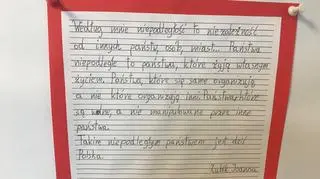 Według mnie niepodległość to niezależność
od innych państw, osób, miast... Państwa
niepodległe to państwa, które żyją własnym
życiem. Państwa które się same organizują
a nie które organizują inni. Państwa które
są wolne, a nie manipulowane przez inne
państwa.
Takim niepodległym państwem jest dziś
Polska.
Zutek Joanna